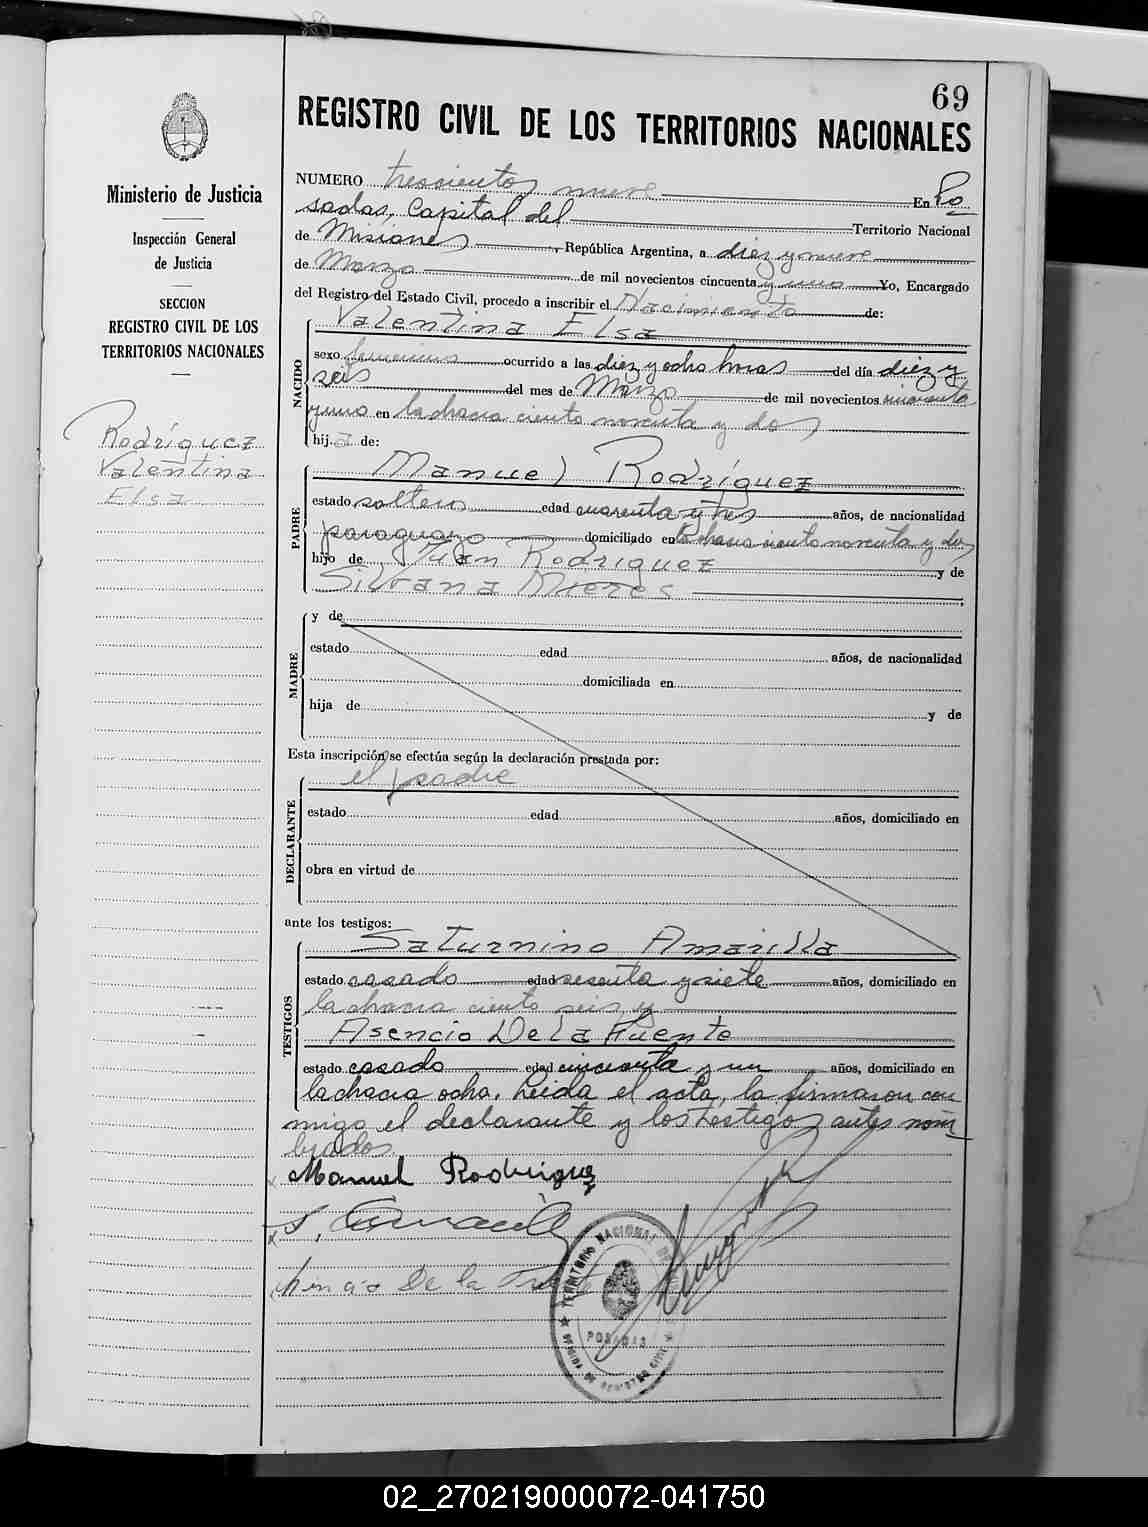 69
REGISTRO CIVIL DE LOS TERRITORIOS NACIONALES
Ministerio de Justicia
Inspección General
de Justicia
SECCION
REGISTRO CIVIL DE LOS
TERRITORIOS NACIONALES
Rodríguez
Valentina
Elsa
NUMERO trescientos nueve En Po
sadas, Capital del Territorio Nacional
de Misiones, República Argentina, a diez y nueve
de Marzo de mil novecientos cincuenta y uno Yo, Encargado
del Registro del Estado Civil, procedo a inscribir el Nacimiento de:
NACIDO
Valentina Elsa
sexo femenino ocurrido a las diez y ocho horas del día diez y
seis del mes de Marzo de mil novecientos cincuenta
y uno en la chacra ciento noventa y dos
hija de:
PADRE
Manuel Rodríguez
estado soltero edad cuarenta y tres años, de nacionalidad
paraguayo domiciliado en la chacra ciento noventa y dos
hijo de Juan Rodriguez y de
Silvana Mieres
MADRE
y de
estado edad años, de nacionalidad
domiciliada en
hija de y de
Esta inscripción se efectúa según la declaración prestada por:
DECLARANTE
el padre
estado edad años, domiciliado en
obra en virtud de
ante los testigos:
TESTIGOS
Saturnino Amarilla
estado casado edad sesenta y siete años, domiciliado en
la chacra ciento seis y
Asencio De La Fuente
estado casado edad cincuenta y un años, domiciliado en
la chacra ocho. Leida el acta, la firmaron con
migo el declarante y los testigos antes nom
brados
Manuel Rodriguez
S. Amarilla
De la
TERRITORIO NACIONAL DE
POSADAS
OFICINA DE REGISTRO CIVIL
02_270219000072-041750